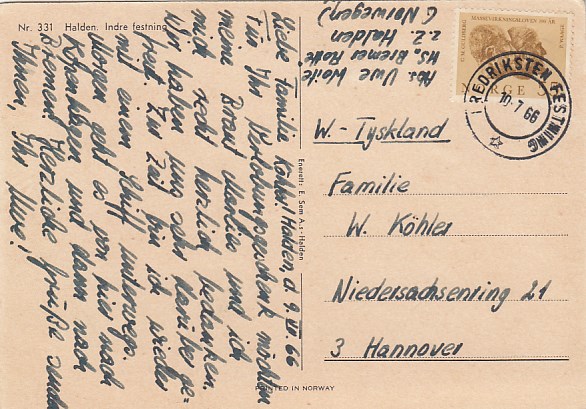 Nr. 331 Halden. Indre festning
Liebe Familie Köhler! Halden, d. 9. VII. 66
Für Ihr Verlobungsgeschenk möchten
meine Braut Marlies und ich
mich recht herzlich bedanken.
Wir haben uns sehr darüber ge-
freut. Zur Zeit bin ich wieder
mit einem Schiff unterwegs.
Morgen geht es von hier nach
Kopenhagen und dann nach
Bremen. Herzliche Grüße sendet
Ihnen, Ihr Uwe!
Enerett: E. Sem A.s - Halden
PRINTED IN NORWAY
Abs. Uwe
MS. Bremer Rose
z.Z. Halden
(Norwegen)
MASSEVIRKNINGSLOVEN 100 ÅR
C.M. GULDBERG
P. WAAGE
NORGE
FREDRIKSTEN FESTNING
10.7.66
W.-Tyskland
Familie
W. Köhler
Niedersachsenring 21
3 Hannover